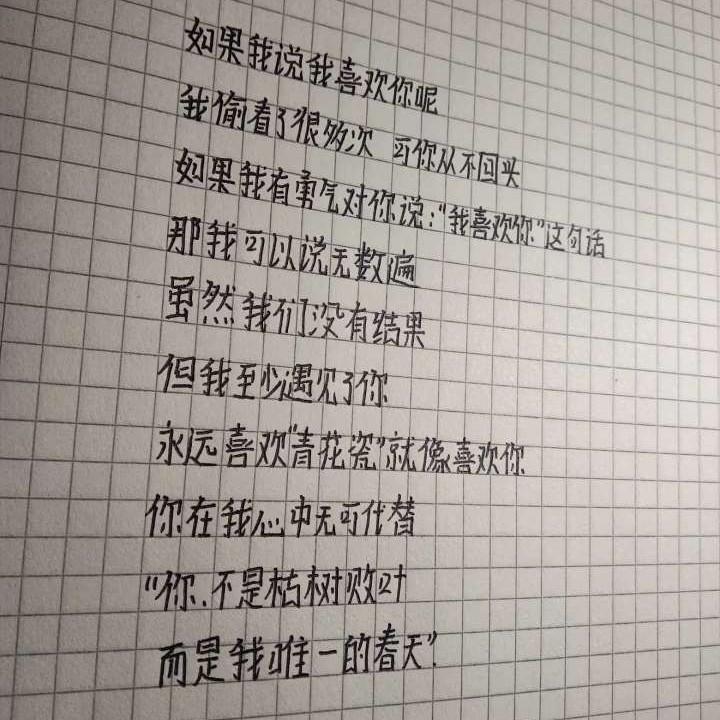 如果我说我喜欢你呢
我偷看了很多次 可你从不回头
如果我有勇气对你说:“我喜欢你”这句话
那我可以说无数遍
虽然我们没有结果
但我至少遇见了你
永远喜欢“青花瓷”就像喜欢你
你在我心中无可代替
“你.不是枯树败叶
而是我唯一的春天”.